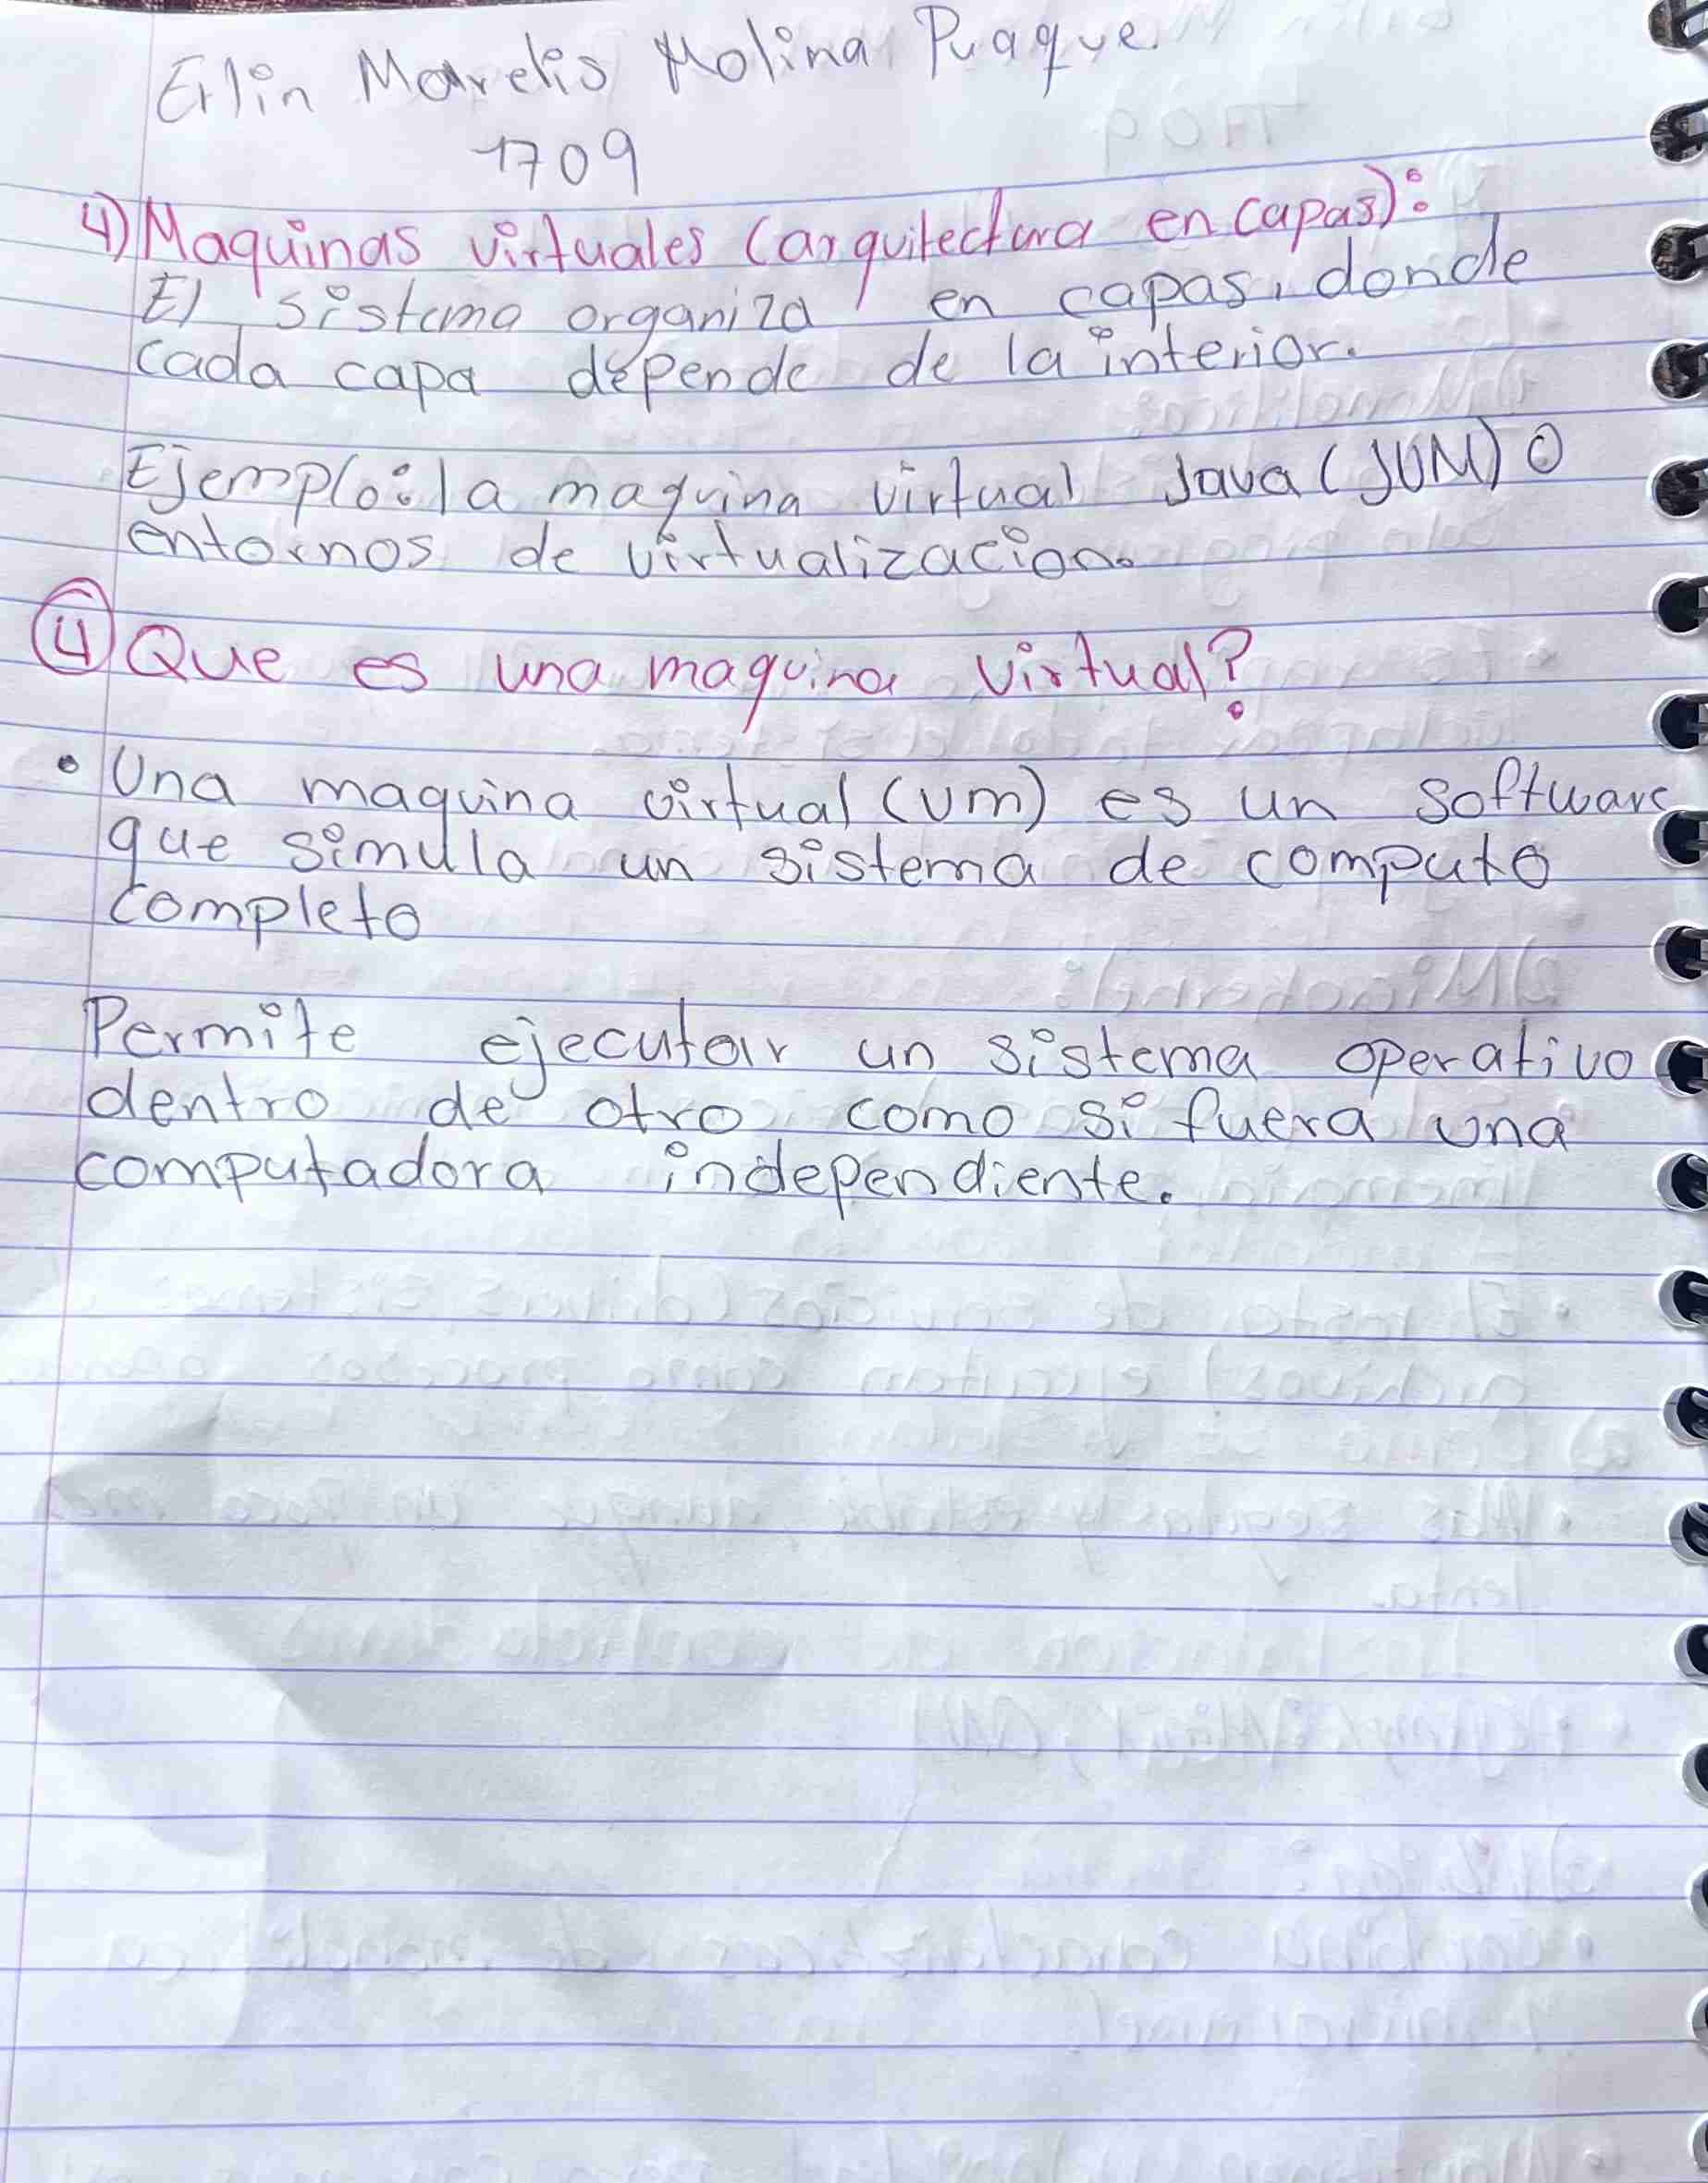 Erlin Marelis Molina Puaque.
1709
4) Maquinas virtuales (arquitectura en capas):
El sistema organiza en capas, donde
cada capa depende de la interior.
Ejemplo: la maquina virtual Java (JUM) O
entornos de virtualizacion.
4) Que es una maquina virtual?
• Una maquina virtual (vm) es un software
que simula un sistema de computo
completo
Permite ejecutar un sistema operativo
dentro de otro como si fuera una
computadora independiente.